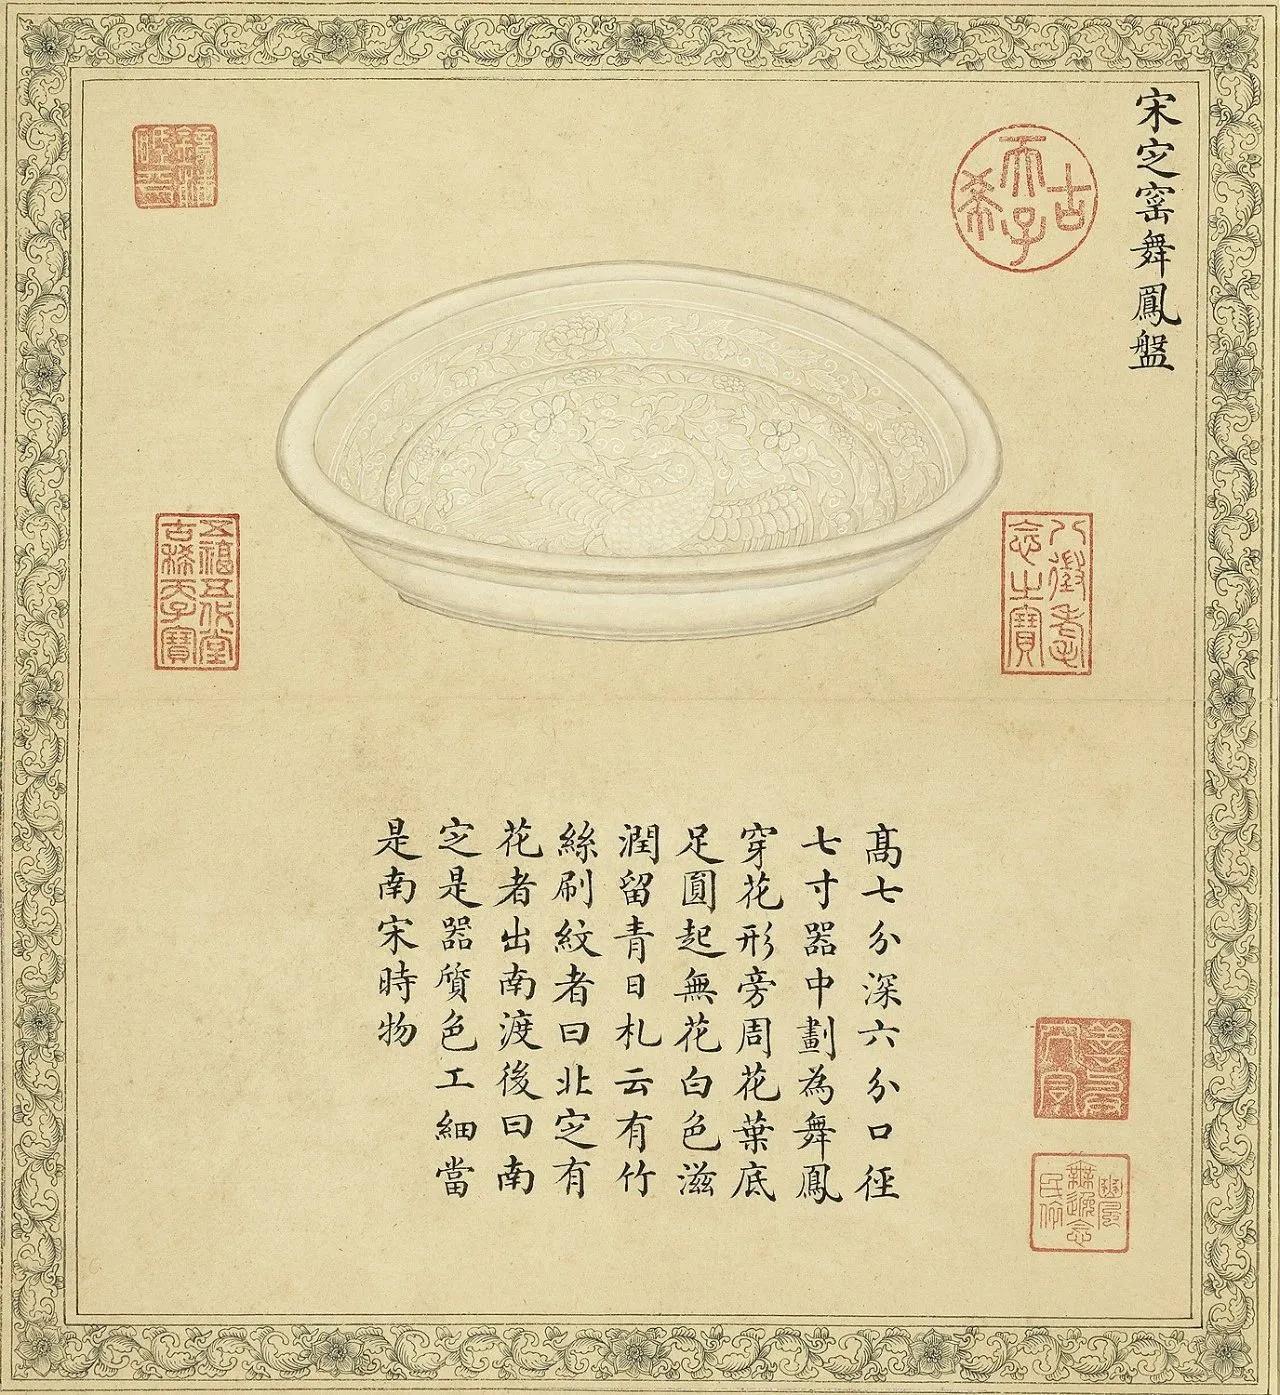 宋㝎窰舞鳳盤
古希天子
八徵耄
念之寶
五福五代堂
古稀天子寶
髙七分深六分口徑
七寸器中劃為舞鳳
穿花形旁周花葉底
足圓起無花白色滋
潤留青日札云有竹
絲刷紋者曰北㝎有
花者出南渡後曰南
㝎是器質色工細當
是南宋時物